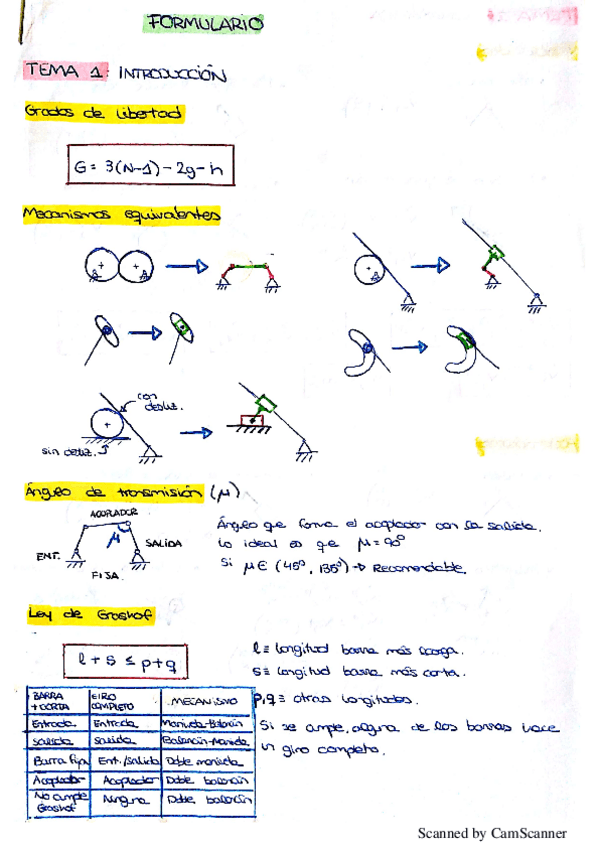 FORMULARIO
TEMA 1: INTRODUCCIÓN
Grados de libertad
G = 3(N-1) - 2g - h
Mecanismos equivalentes
con
desliz.
sin desliz.
Ángulo de transmisión (μ)
ACOPLADOR
μ
ENT.
SALIDA
FIJA
Ángulo que forma el acoplador con la salida.
Lo ideal es que μ = 90°
Si μ ∈ (45°, 135°) → Recomendable.
Ley de Grashof
l + s ≤ p+q
l ≡ longitud barra más larga.
s ≡ longitud barra más corta.
p,q ≡ otras longitudes.
Si se cumple, alguna de las barras hace
un giro completo.
BARRA + CORTA GIRO COMPLETO MECANISMO
Entrada Entrada Manivela-Balancín
Salida Salida Balancín-Manivela
Barra fija Ent./Salida Doble manivela
Acoplador Acoplador Doble balancín
No cumple Grashof Ninguna Doble balancín
Scanned by CamScanner